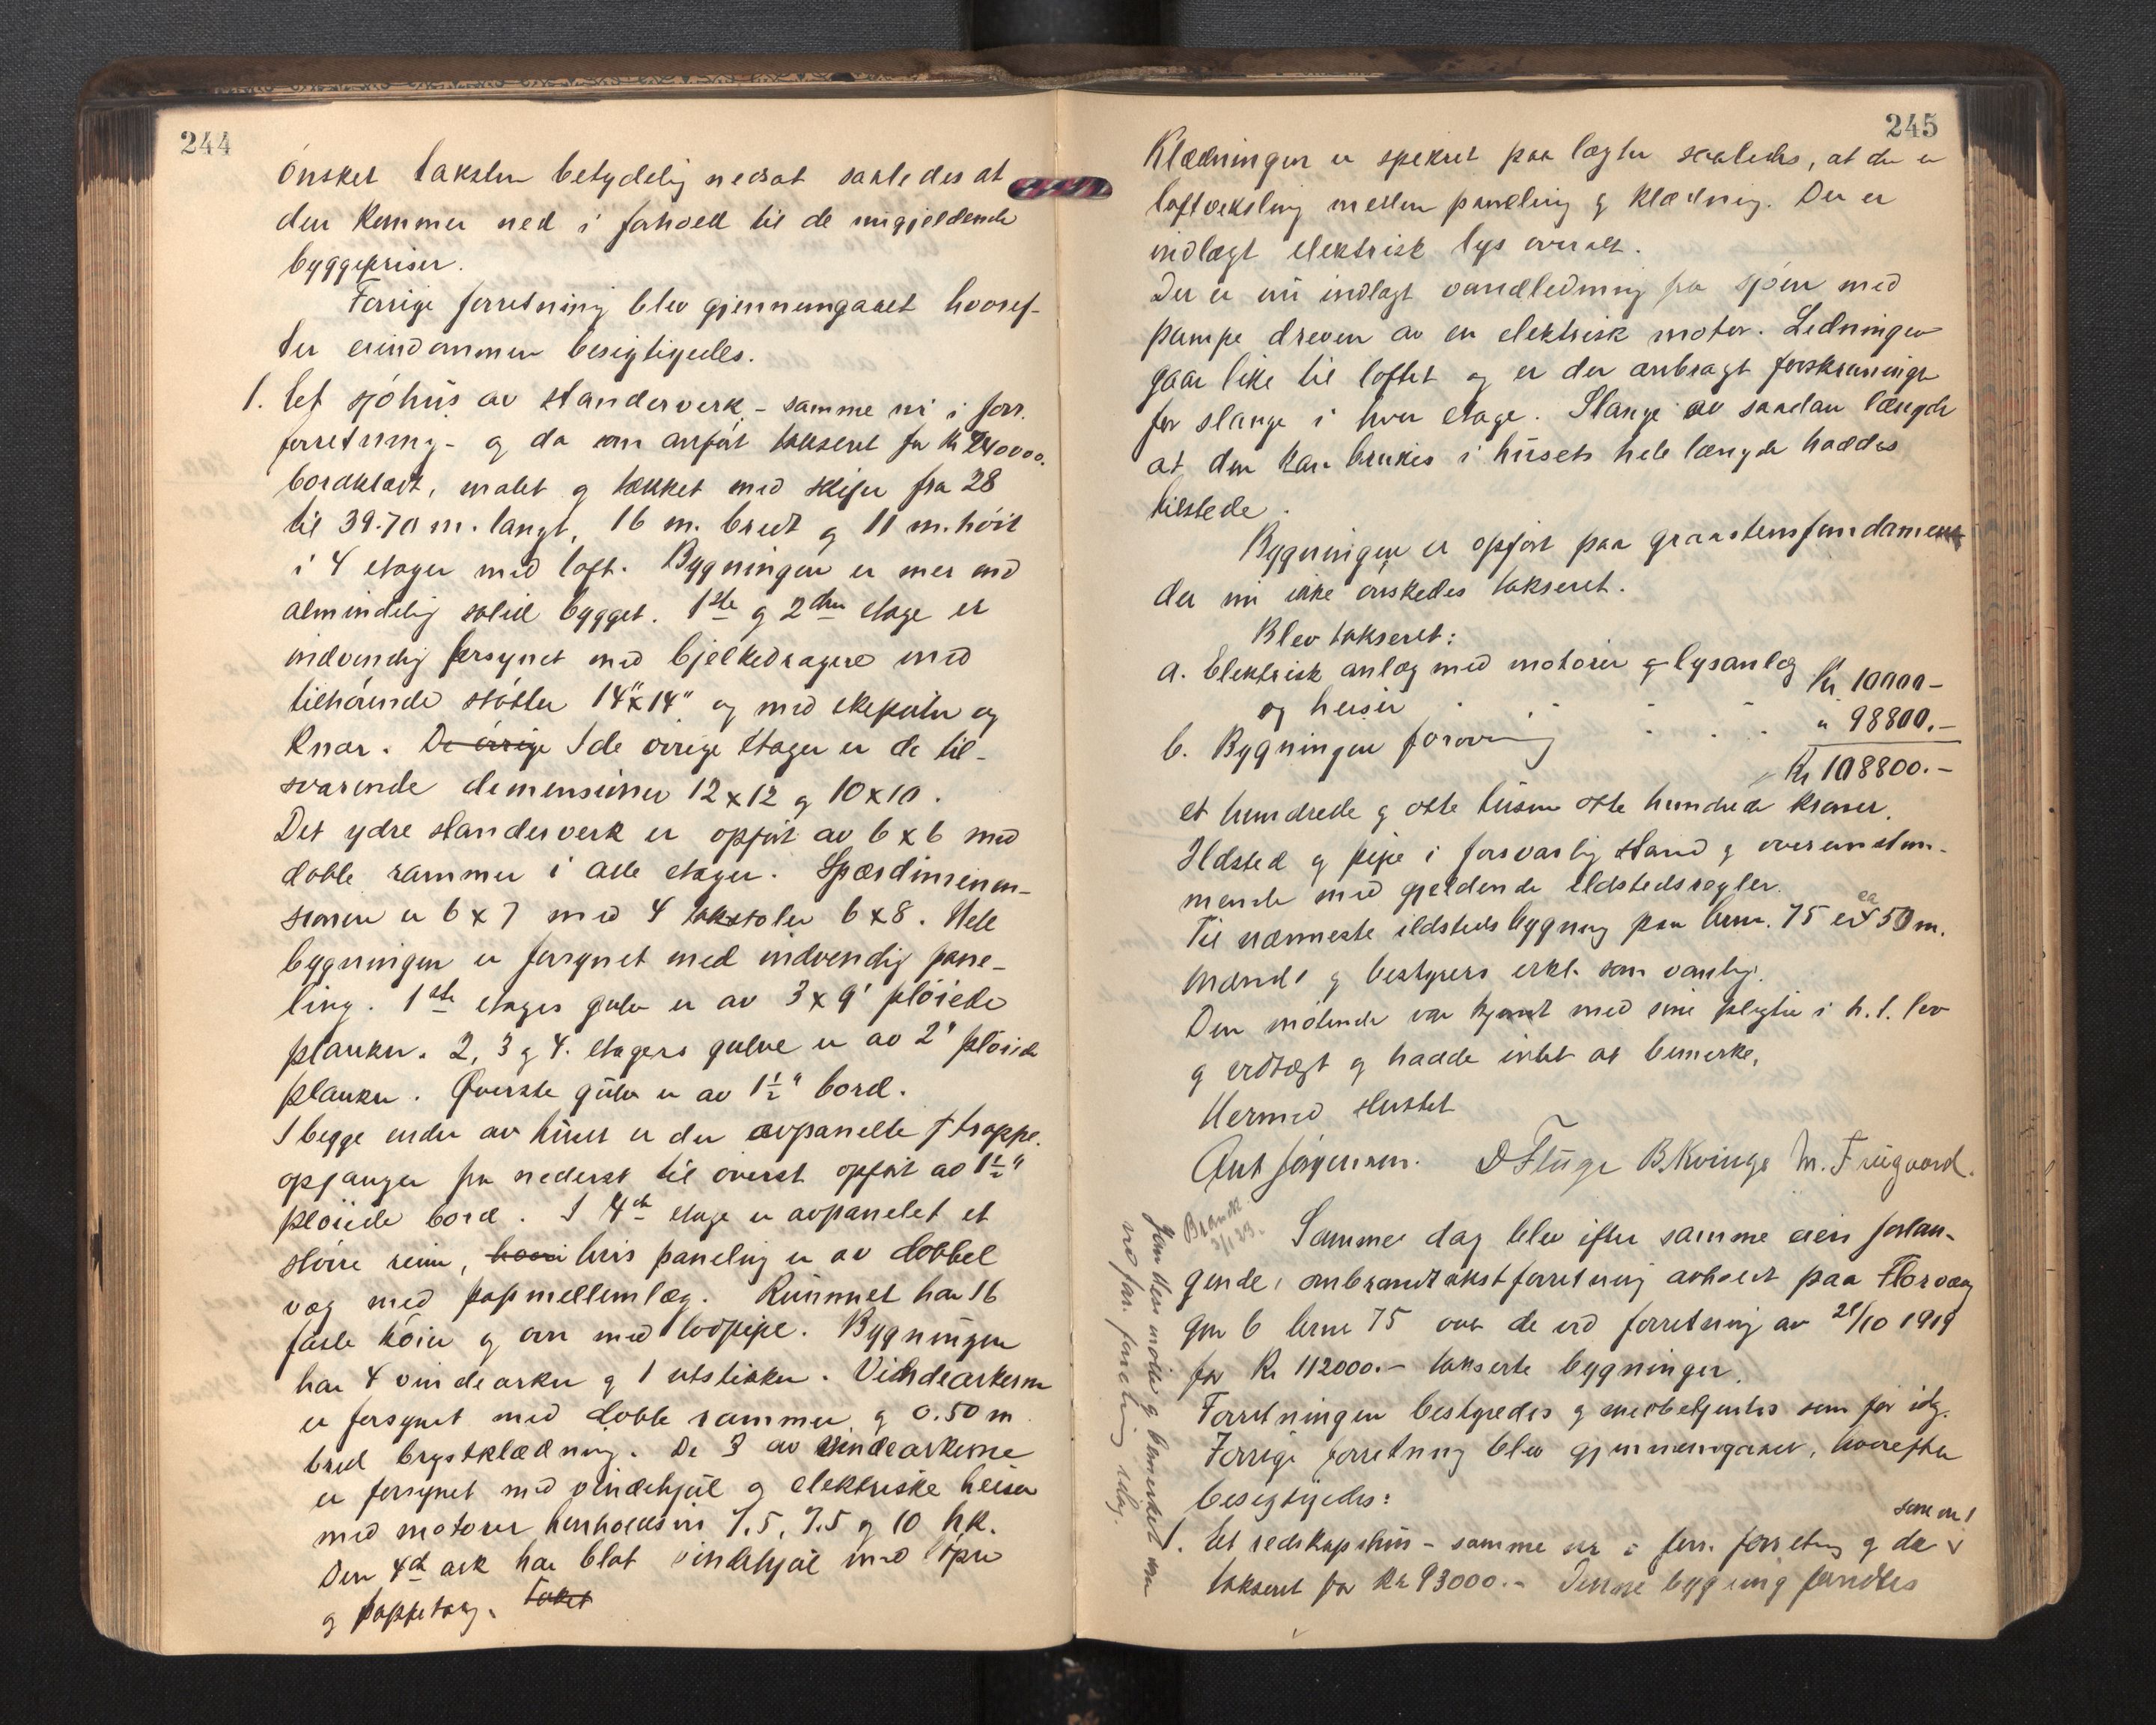 244
ønsket taksten betydelig nedsat saaledes at
den kommer ned i forhold til de nugjeldende
byggepriser.
Forrige forretning blev gjennemgaaet hvoref-
ter eiendommen besigtigedes.
1. Et sjøhus av standerverk - samme nr i forr.
forretning - og da som anført taksert for kr 240000.
bordklædt, malet og tækket med skifer fra 28
til 39.70 m. langt, 16 m. bredt og 11 m. höit
i 4 etager med loft. Bygningen er mer end
almindelig solid bygget. 1ste og 2den etage er
indvendig forsynet med bjelkedragere med
tilhørende støtter 14"x14" og med skepuler og
knær. De øvrige I de øvrige etager er de til-
svarende demensioner 12x12 og 10x10.
Det ydre standerverk er opført av 6x6 med
doble rammer i alle etager. Spærdimensen-
sionen er 6x7 med 4 takstoler 6x8. Hele
bygningen er forsynet med indvendig pane-
ling. 1ste etages gulv er av 3x9" pløiede
planker. 2, 3 og 4. etagers gulve er av 2" pløiede
planker. Øverste gulv er av 1½" bord.
I begge ender av huset er der avpanelte trappe-
opganger fra nederst til øverst opført av 1½"
pløiede bord. I 4de etage er avpanelet et
større rum, hvis paneling er av dobbel
væg med papmellemlæg. Rummet har 16
faste køier og ovn med lodpipe. Bygningen
har 4 vindearker og 1 utstikker. Vindearkerne
er forsynet med doble rammer og 0.50 m
bred brystklædning. De 3 av vindearkerne
er forsynet med vindehjul og elektriske heiser
med motorer henholdsvis 7.5, 7.5 og 10 hk.
Den 4de ark har blot vindehjul med løper
og toppetaug. Taket
245
Klædningen er spikret paa lægter saaledes, at der er
luftveksling mellem paneling og klædning. Der er
indlagt elektrisk lys overalt.
Der er nu indlagt vandledning fra sjøen med
pumpe dreven av en elektrisk motor. Ledningen
gaar like til loftet og er der anbragt forskruninger
for slange i hver etage. Slange av saadan længde
at den kan brukes i husets hele længde haddes
tilstede.
Bygningen er opført paa graastensfundament
der nu ikke ønskedes taksert.
Blev taksert:
a. Elektrisk anlæg med motorer og lysanlæg
og heiser Kr 10000-
b. Bygningen forøvrig " 98800.-
Kr 108800.-
et hundrede og otte tusen otte hundrede kroner.
Ildsted og pipe i forsvarlig stand og overenstem-
mende med gjeldende ildstedsregler.
Til nærmeste ildstedsbygning paa brnr. 75 er ca 50 m.
Mænd og bestyrers erkl. som vanlig.
Den møtende var kjendt med sine plegter i h. t. lov
og vedtægt og hadde intet at bemerke.
Hermed sluttet
Ant Jørgensen. D Flüge B. Kvinge M. Friigaard.
Brandk. 3/1 23.
Samme dag blev efter samme eiers forlan-
gende, ombrandtakstforretning avholdt paa Florvaag
gnr 6 brnr 75 over de ved forretning av 21/10 1919
for kr 112000.- takserte bygninger.
Forretningen bestyredes og medbetjentes som før idg.
Forrige forretning blev gjennemgaaet, hvorefter
besigtigedes:
1. Et redskapshus - samme nr i forr. forretning og da som anf
taksert for kr 93000.- Denne bygning fandtes
Jon Uere møtte og bemerket som
ved før. forretning idag.